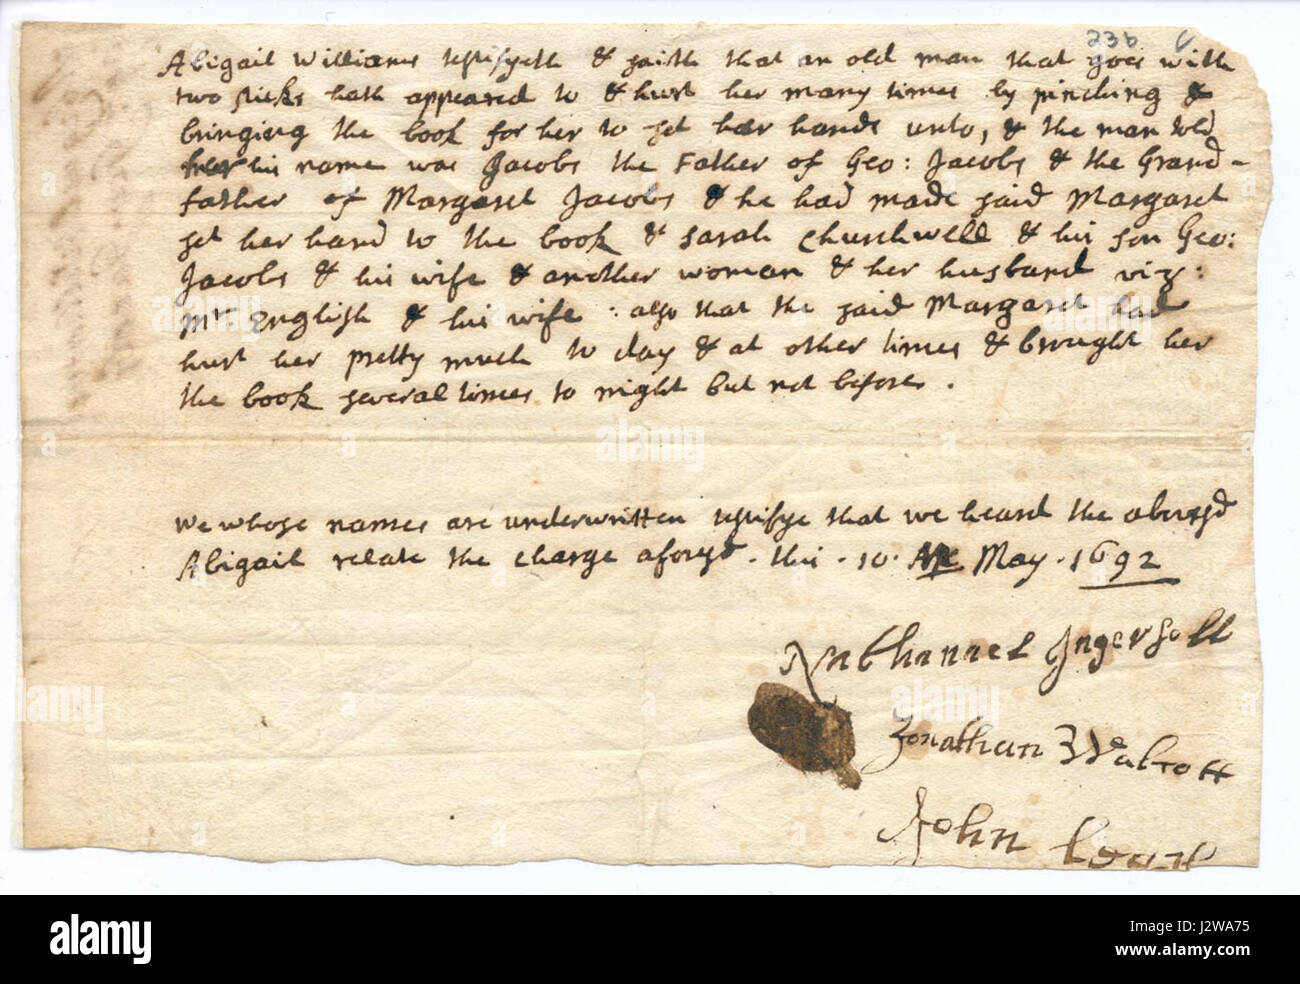 236
Abigail Williams testifyeth & saith that an old man that goes with
two sticks hath appeared to & hurt her many times by pinching &
bringing the book for her to set her hande unto, & the man told
her his name was Jacobs the Father of Geo: Jacobs & the Grand-
father of Margaret Jacobs & he had made said Margaret
set her hand to the book & Sarah Churchwell & his son Geo:
Jacobs & his wife & another woman & her husband viz:
Mr. English & his wife : also that the said Margaret had
hurt her pretty much to day & at other times & brought her
the book several times to night but not before.
We whose names are underwritten testifye that we heard the abovesd
Abigail relate the charge aforesd. this. 10. May. 1692
Nathanael Ingersoll
Jonathan Walcott
John
alamy
alamy stock photo
J2WA75
www.alamy.com